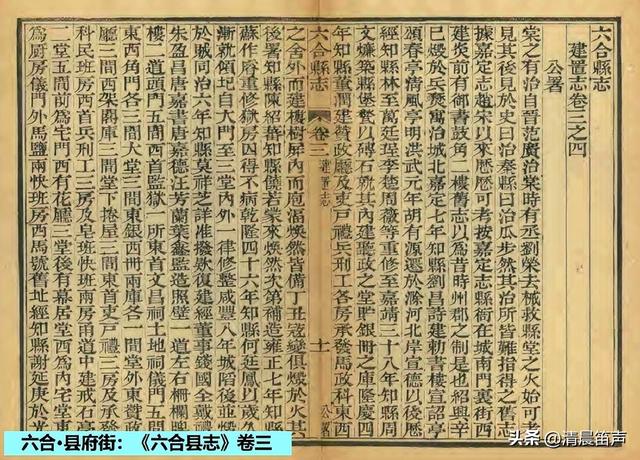 六合縣志
建置志卷三之四
公署
棠之有治自晉范廣治棠時有丞劉榮去械救縣堂之火始可考
見其後見於史曰治秦縣曰治瓜步然其治所皆難指得之舊志
據嘉定志趙宋以來歷歷可考按嘉定志縣衙在城南門裏街西
建炎前有御書鼓角二樓舊志以爲昔時州郡之制是也紹興辛
巳燬於兵燹寓治城北嘉定七年知縣劉昌詩建勅書樓宣詔亭
頒春亭清風亭明洪武元年胡有源遷於滁河北岸宣德以後歷
經知縣林至萬廷珵李楚周薇等重修至嘉靖三十八年知縣周
文爌築縣堡甃以磚石就其內建聽政之堂貯銀冊之庫隆慶四
年知縣董潤建贊政廳及吏戶禮兵刑工各房承發馬政科東西
六合縣志 卷三 建置志 十一 公署
之舍外而建樓樹屏內而庖湢煥然皆備丁丑寇變俱燬於火其
後署知縣陳紹知縣饒若業來煥然次第補造雍正七年知縣
蘇作睿重修獄房因得不病乾隆四十六年知縣何廷鳳以歲久
漸就傾圮自大門至三堂內外一律修整咸豐八年城陷後並燬
於賊同治六年知縣莫祥芝詳准撥款復建經董事錢國全戴禮
朱盈昌唐嘉書唐嘉德汪芳蘭葉鑫監造照壁一道左右柵欄鼓
樓一道頭門五間西首監獄一所東首文昌祠土地祠儀門五間
東西角門各三間大堂三間東銀西冊兩庫各一間堂外東贊政
廳三間西架閣庫三間堂下捲屋三間東首吏戶禮三房
科民班房西首兵刑工三房及皂班快班兩房甬道中建戒石亭
二堂五間前爲宅門西有花廳三堂後有幕居堂西爲內宅
爲廚房儀門外馬鹽兩快班房西馬號舊址經知縣謝延庚於光
六合·县府街：《六合县志》卷三
头条 @清晨笛声